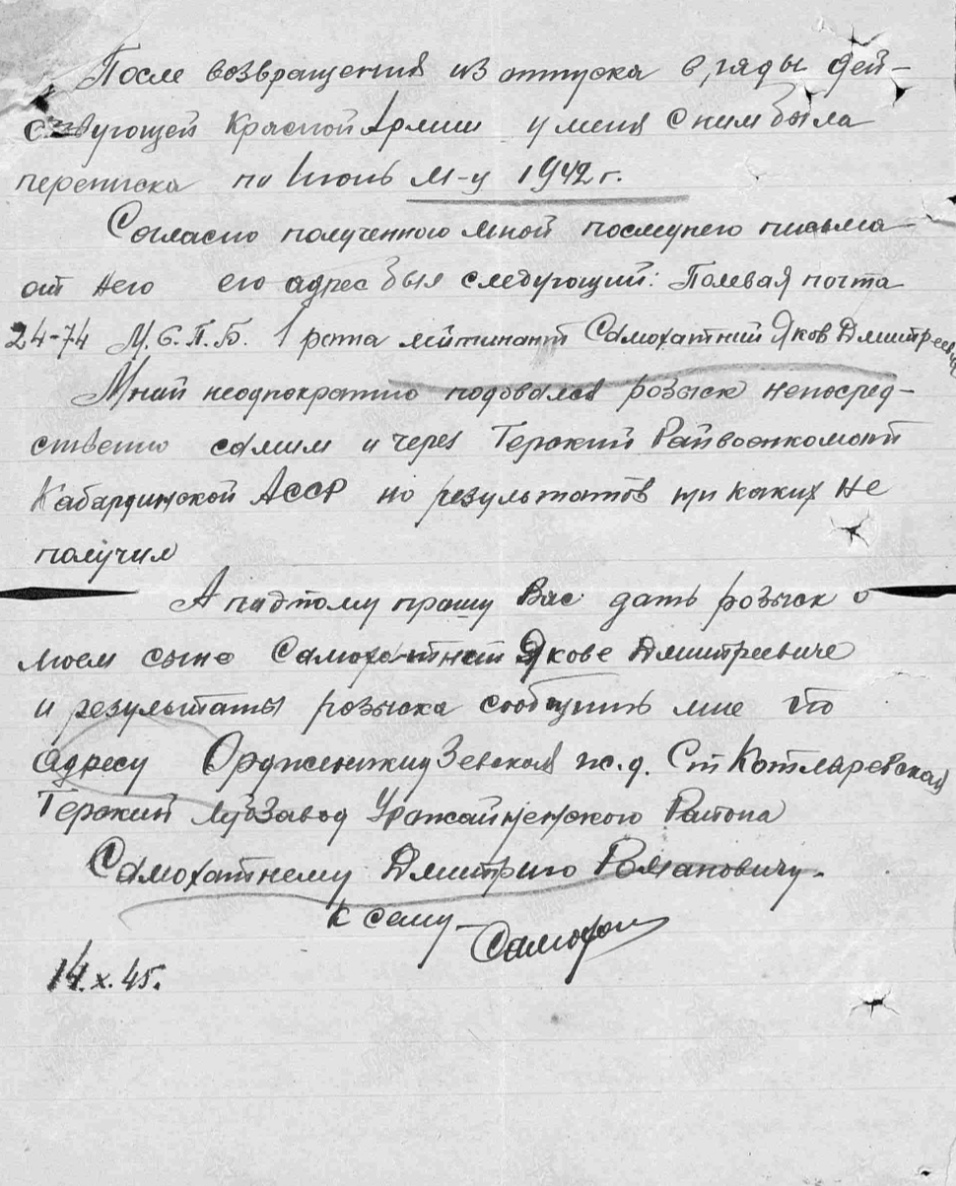 После возвращения из отпуска в ряды дей-
ствующей Красной Армии у меня с ним была
переписка по Июнь м-ц 1942 г.
Согласно полученного мной послднего письма
от него его адрес был следующий: Полевая почта
24-74 М.С.П.Б. 1 рота лейтинант Самохатний Яков Дмитреевич
Мной неоднократно подовался розыск непосред-
ственно самим и через Терский Райвоенкомат
Кабардинской АССР но результатов ни каких не
получил
А поэтому прошу Вас дать розыск о
моем сыне Самохатний Якове Дмитриевиче
и результаты розыска сообщить мне по
адресу Орджоникидзевская ж.д. Ст Котляревская
Терский Завод Урожайненского Района
Самохатнему Дмитрию Романовичу.
К сему Самохат
14.x.45.